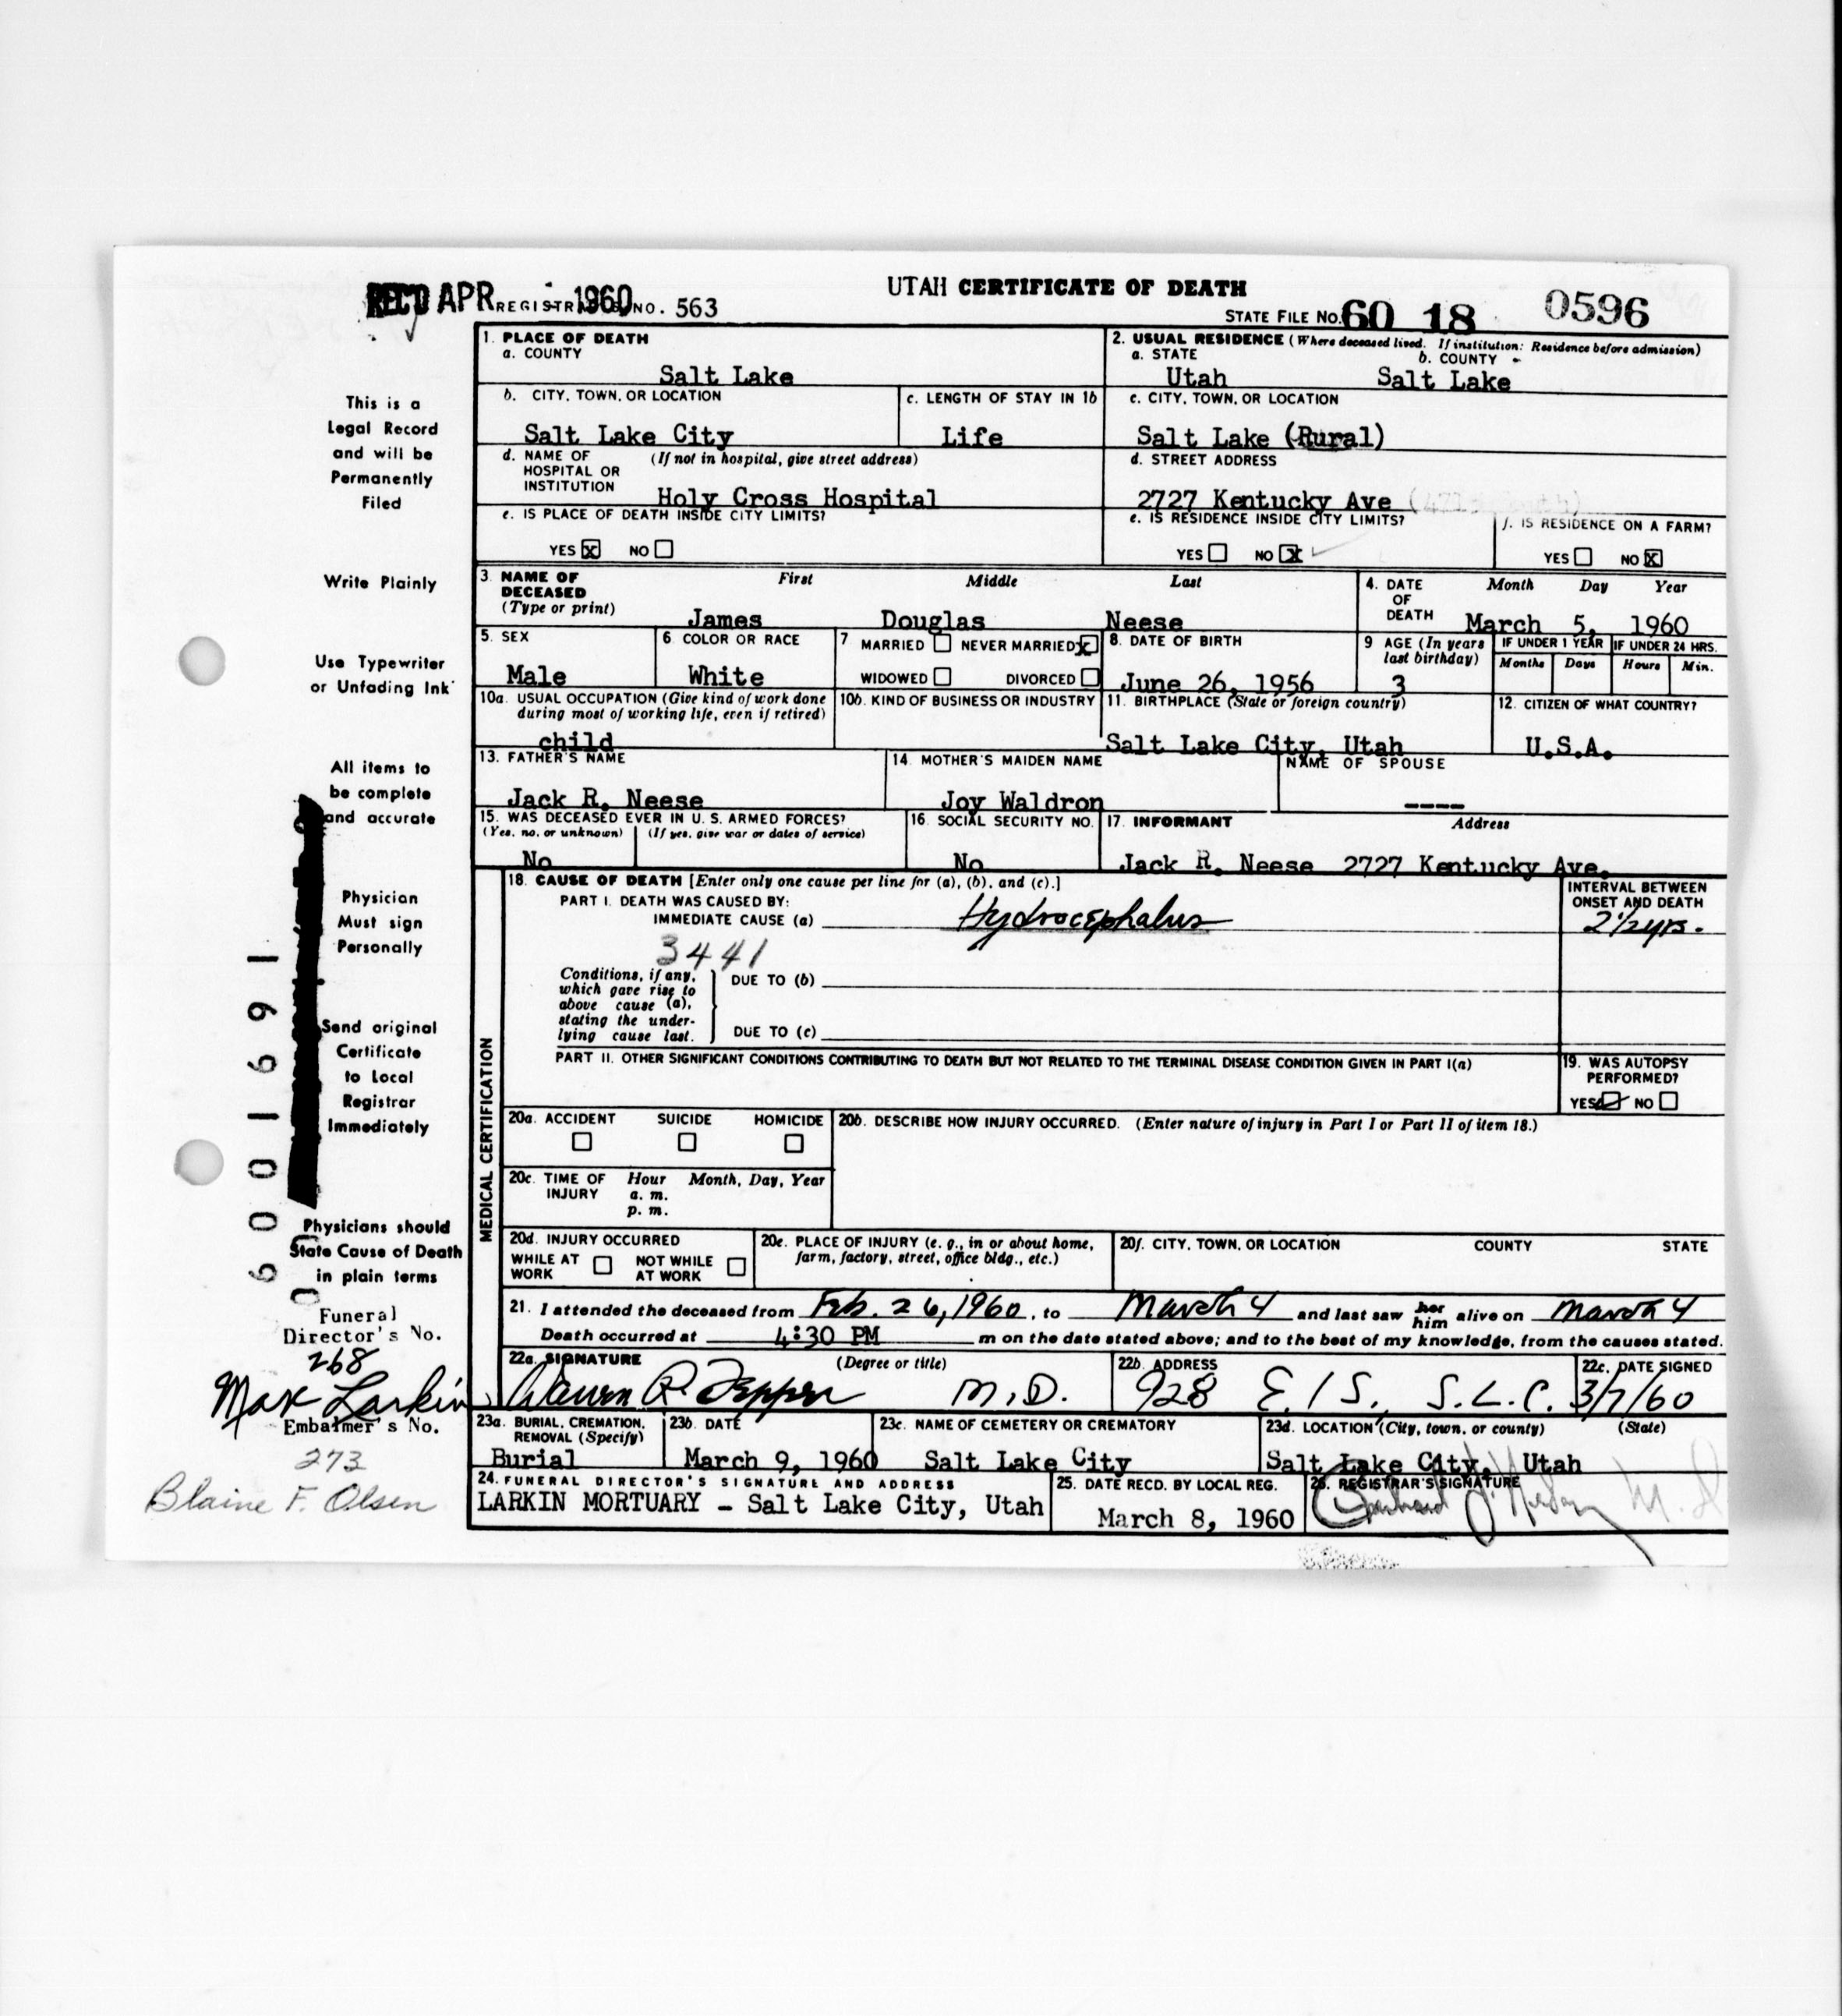 UTAH CERTIFICATE OF DEATH
REC'D APR 1960 REGISTRAR'S NO. 563
STATE FILE NO. 60 18 0596
This is a
Legal Record
and will be
Permanently
Filed
Write Plainly
Use Typewriter
or Unfading Ink
All items to
be complete
and accurate
Physician
Must sign
Personally
Send original
Certificate
to Local
Registrar
Immediately
Physicians should
State Cause of Death
in plain terms
Funeral
Director's No.
268
Max Larkin
Embalmer's No.
273
Blaine F. Olsen
6001691
1. PLACE OF DEATH
a. COUNTY
Salt Lake
2. USUAL RESIDENCE (Where deceased lived. If institution: Residence before admission)
a. STATE b. COUNTY
Utah Salt Lake
b. CITY, TOWN, OR LOCATION
Salt Lake City
c. LENGTH OF STAY IN 1b
Life
c. CITY, TOWN, OR LOCATION
Salt Lake (Rural)
d. NAME OF (If not in hospital, give street address)
HOSPITAL OR
INSTITUTION
Holy Cross Hospital
d. STREET ADDRESS
2727 Kentucky Ave
e. IS PLACE OF DEATH INSIDE CITY LIMITS?
YES X NO
e. IS RESIDENCE INSIDE CITY LIMITS?
YES NO X
f. IS RESIDENCE ON A FARM?
YES NO X
3. NAME OF First Middle Last
DECEASED
(Type or print)
James Douglas Neese
4. DATE Month Day Year
OF
DEATH March 5, 1960
5. SEX
Male
6 COLOR OR RACE
White
7 MARRIED NEVER MARRIED X
WIDOWED DIVORCED
8. DATE OF BIRTH
June 26, 1956
9 AGE (In years
last birthday)
3
IF UNDER 1 YEAR IF UNDER 24 HRS.
Months Days Hours Min.
10a. USUAL OCCUPATION (Give kind of work done
during most of working life, even if retired)
child
10b. KIND OF BUSINESS OR INDUSTRY
11. BIRTHPLACE (State or foreign country)
Salt Lake City, Utah
12. CITIZEN OF WHAT COUNTRY?
U.S.A.
13. FATHER'S NAME
Jack R. Neese
14. MOTHER'S MAIDEN NAME
Joy Waldron
NAME OF SPOUSE
----
15. WAS DECEASED EVER IN U. S. ARMED FORCES?
(Yes, no, or unknown) (If yes, give war or dates of service)
No
16. SOCIAL SECURITY NO.
No
17. INFORMANT Address
Jack R. Neese 2727 Kentucky Ave.
MEDICAL CERTIFICATION
18. CAUSE OF DEATH [Enter only one cause per line for (a), (b), and (c).]
PART I. DEATH WAS CAUSED BY:
IMMEDIATE CAUSE (a) Hydrocephalus
INTERVAL BETWEEN
ONSET AND DEATH
2 1/2 yrs.
3441
Conditions, if any,
which gave rise to
above cause (a),
stating the under-
lying cause last.
DUE TO (b)
DUE TO (c)
PART II. OTHER SIGNIFICANT CONDITIONS CONTRIBUTING TO DEATH BUT NOT RELATED TO THE TERMINAL DISEASE CONDITION GIVEN IN PART I(a)
19. WAS AUTOPSY
PERFORMED?
YES NO
20a. ACCIDENT SUICIDE HOMICIDE
20b. DESCRIBE HOW INJURY OCCURRED. (Enter nature of injury in Part I or Part II of item 18.)
20c. TIME OF Hour Month, Day, Year
INJURY a. m.
p. m.
20d. INJURY OCCURRED
WHILE AT NOT WHILE
WORK AT WORK
20e. PLACE OF INJURY (e. g., in or about home,
farm, factory, street, office bldg., etc.)
20f. CITY, TOWN, OR LOCATION COUNTY STATE
21. I attended the deceased from Feb. 26, 1960, to March 4 and last saw her him alive on March 4
Death occurred at 4:30 PM m on the date stated above; and to the best of my knowledge, from the causes stated.
22a. SIGNATURE (Degree or title)
Pepper M.D.
22b. ADDRESS
928 E. 1 S., S.L.C.
22c. DATE SIGNED
3/7/60
23a. BURIAL, CREMATION,
REMOVAL (Specify)
Burial
23b. DATE
March 9, 1960
23c. NAME OF CEMETERY OR CREMATORY
Salt Lake City
23d. LOCATION (City, town, or county) (State)
Salt Lake City, Utah
24. FUNERAL DIRECTOR'S SIGNATURE AND ADDRESS
LARKIN MORTUARY - Salt Lake City, Utah
25. DATE RECD. BY LOCAL REG.
March 8, 1960
26. REGISTRAR'S SIGNATURE